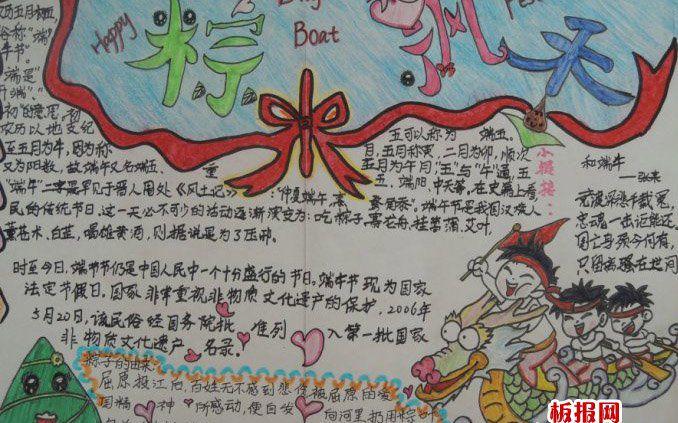 Happy
Boat
粽飘天
历五月初五
俗称"端
午节。
端是"
开端"
初"的意思,初
农历以地支纪
至五月为午,因为称
又为阳数,故端午又名端五、
五可以称为 端五。
月,五月称寅,二月为卯,顺次
五月为午月"五"与"午"通,五
五、端阳、中天等,在史籍上
"端午"二字最早见于晋人周处《风土记》:"仲夏端午,
民的传统节日,这一天必不可少的活动逐渐演变为:吃粽子,赛龙舟,挂菖蒲、艾叶
薰苍术、白芷,喝雄黄酒,则据说是为了压邪
端午节是我国汉族人
时至今日,端午节仍是中国人民中一个十分盛行的节日。端午节现为国家
法定节假日。国家非常重视非物质文化遗产的保护,2006年
5月20日,该民俗经国务院批 准列 入第一批国家
非物质文化遗产 名录。
小链接:
和端午
——张耒
竞渡深悲千载冤,
忠魂一去讵能还。
国亡身殒今何有,
只留离骚在世间
粽子的由来
屈原投江死,百姓无不感到悲伤被屈原的爱
国精 神 所感动,便自发 向河里扔用粽
板报网